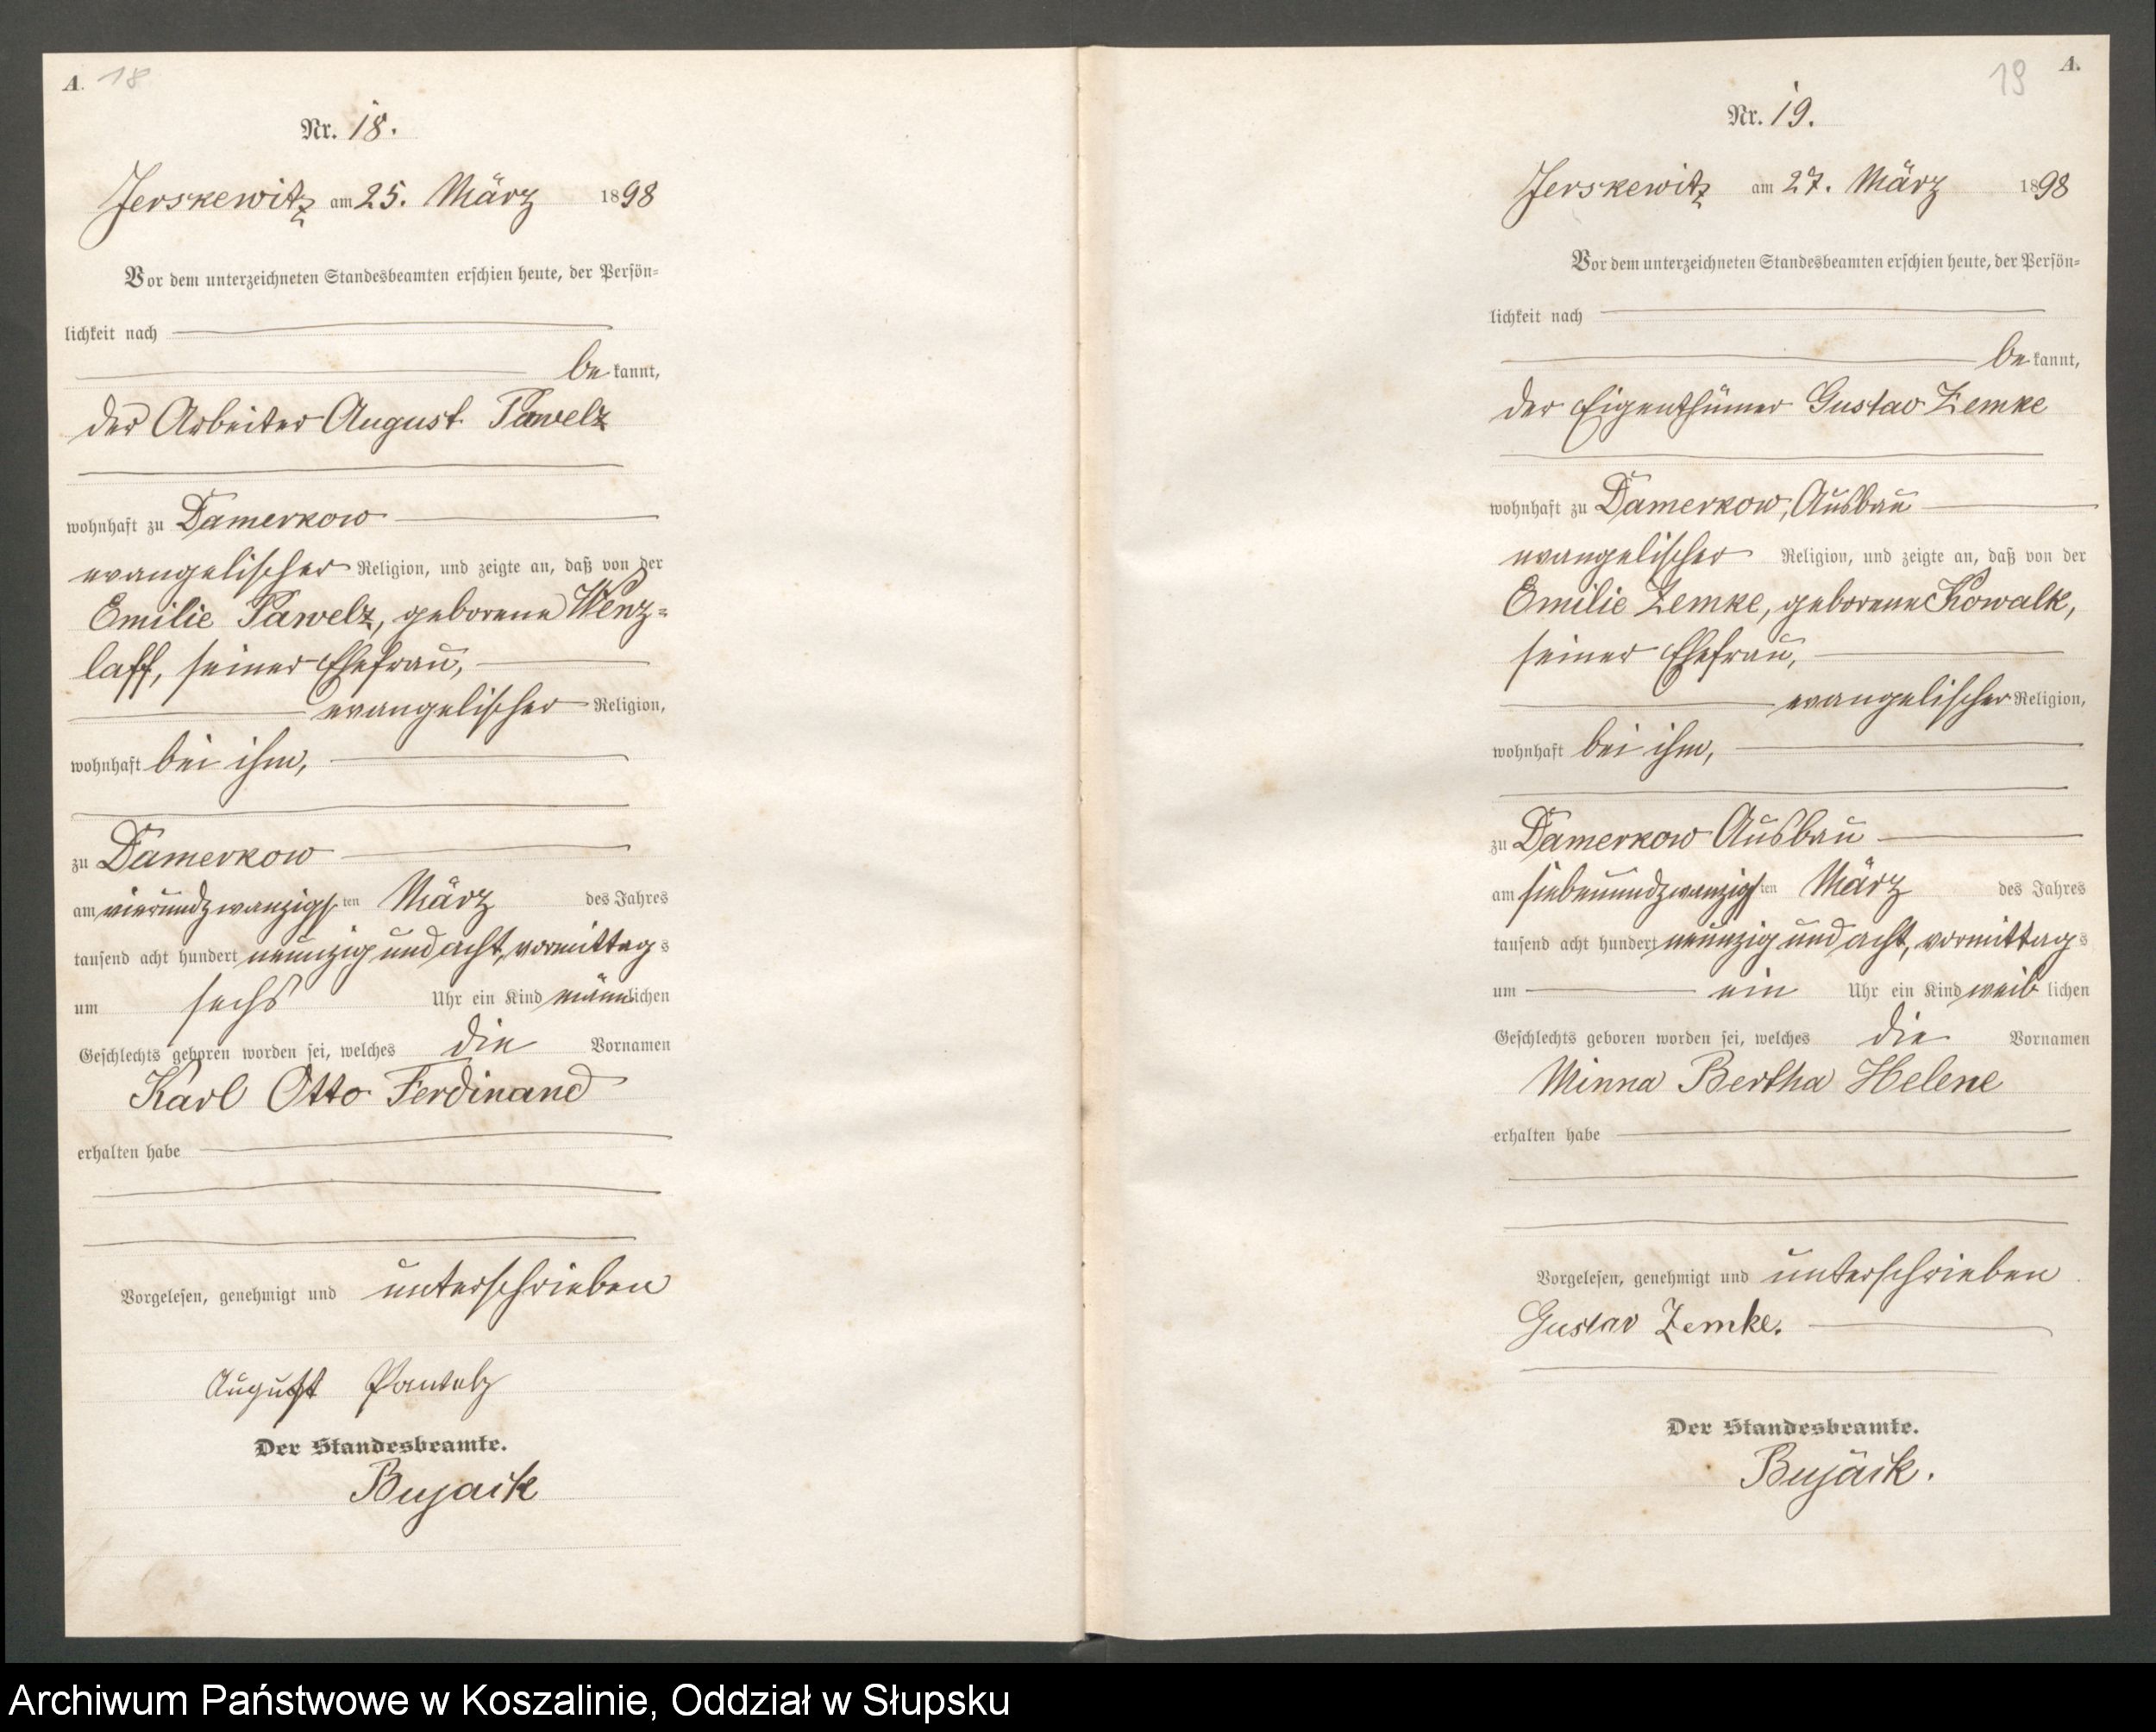 A. 18
Nr. 18.
Jerskewitz am 25. März 1898
Vor dem unterzeichneten Standesbeamten erschien heute, der Persön=
lichkeit nach
be kannt,
der Arbeiter August Pawelz
wohnhaft zu Damerkow
evangelischer Religion, und zeigte an, daß von der
Emilie Pawelz, geborene Wenz=
laff, seiner Ehefrau,
evangelischer Religion,
wohnhaft bei ihm,
zu Damerkow
am vierundzwanzigsten März des Jahres
tausend acht hundert neunzig und acht, vormittags
um sechs Uhr ein Kind männlichen
Geschlechts geboren worden sei, welches die Vornamen
Karl Otto Ferdinand
erhalten habe
Vorgelesen, genehmigt und unterschrieben
August Pawelz
Der Standesbeamte.
Bujack
19 A.
Nr. 19.
Jerskewitz am 27. März 1898
Vor dem unterzeichneten Standesbeamten erschien heute, der Persön=
lichkeit nach
be kannt,
der Eigenthümer Gustav Zemke
wohnhaft zu Damerkow, Ausbau
evangelischer Religion, und zeigte an, daß von der
Emilie Zemke, geborene Kowalk,
seiner Ehefrau,
evangelischer Religion,
wohnhaft bei ihm,
zu Damerkow Ausbau
am siebenundzwanzigsten März des Jahres
tausend acht hundert neunzig und acht, vormittags
um ein Uhr ein Kind weiblichen
Geschlechts geboren worden sei, welches die Vornamen
Minna Bertha Helene
erhalten habe
Vorgelesen, genehmigt und unterschrieben
Gustav Zemke.
Der Standesbeamte.
Bujack.
Archiwum Państwowe w Koszalinie, Oddział w Słupsku